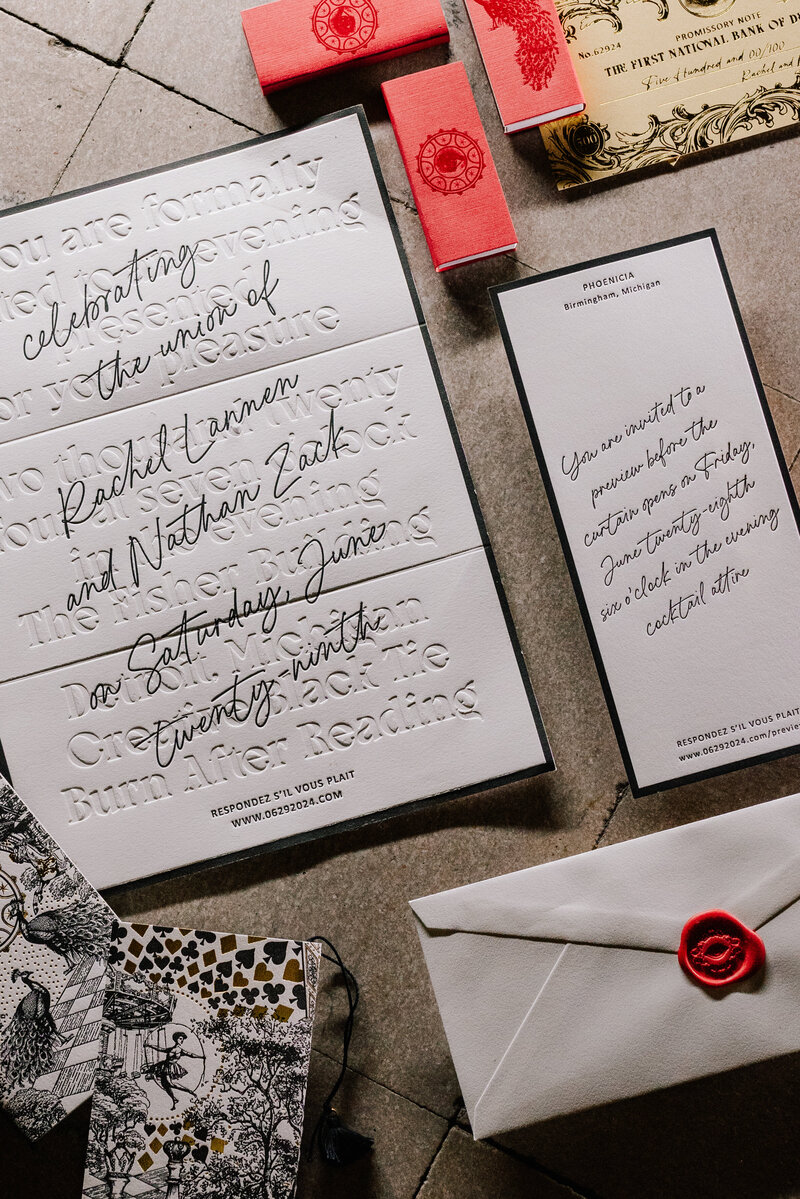 you are formally
invited to an evening
presented
for your pleasure
two thousand twenty
four at seven o'clock
in the evening
The Fisher Building
Detroit, Michigan
Creative Black Tie
Burn After Reading
celebrating
the union of
Rachel Lannen
and Nathan Zack
on Saturday, June
twenty-ninth
RESPONDEZ S'IL VOUS PLAIT
WWW.06292024.COM
PROMISSORY NOTE
No.62924
THE FIRST NATIONAL BANK OF
Five Hundred and 00/100
Rachel and
500
PHOENICIA
Birmingham, Michigan
You are invited to a
preview before the
curtain opens on Friday,
June twenty-eighth
six o'clock in the evening
cocktail attire
RESPONDEZ S'IL VOUS PLAIT
www.06292024.com/previe